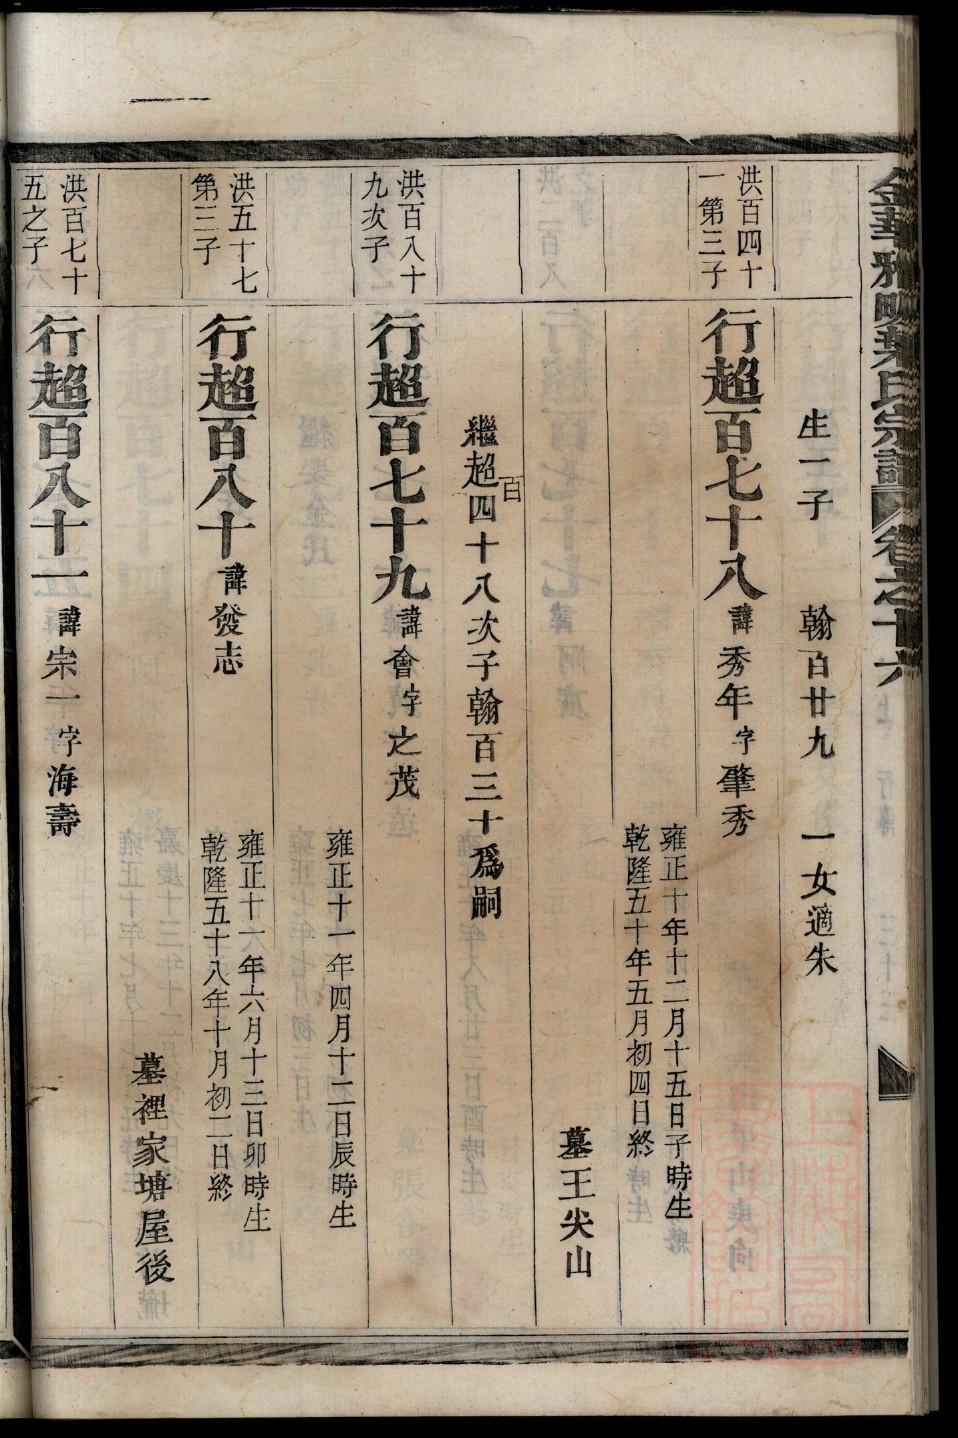 金華雅畈葉氏宗譜 卷之十六
生一子 翰百廿九 一女適朱
洪百四十
一第三子
行超百七十八 諱秀年字肇秀
雍正十年十二月十五日子時生
乾隆五十年五月初四日終
墓王尖山
繼超百四十八次子翰百三十爲嗣
洪百八十
九次子
行超百七十九 諱會字之茂
雍正十一年四月十二日辰時生
洪五十七
第三子
行超百八十 諱發志
雍正十一年六月十三日卯時生
乾隆五十八年十月初二日終
墓裡家塘屋後
洪百七十
五之子
行超百八十一 諱宗一字海壽